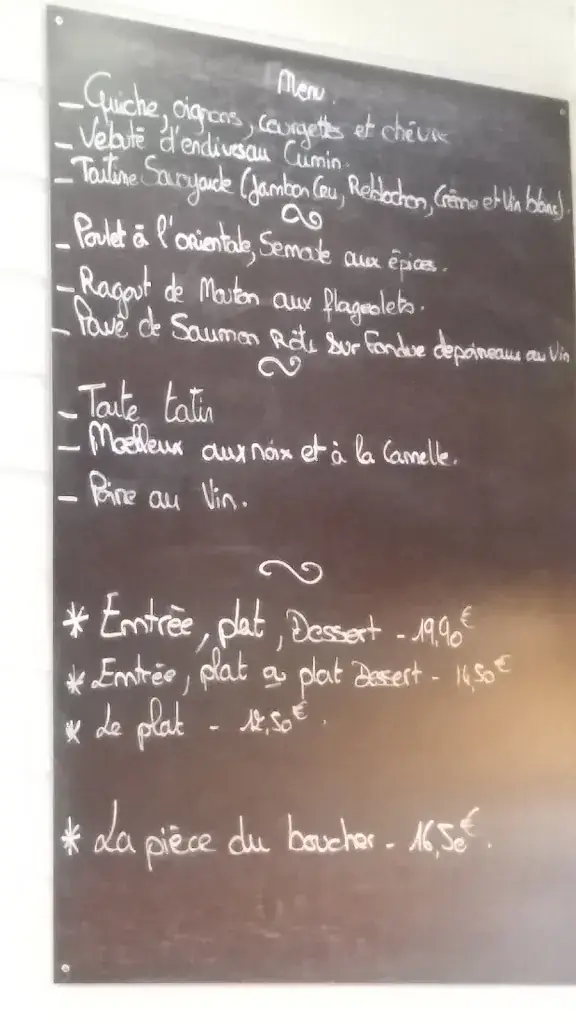 Menu.
- Quiche, oignons, courgettes et chèvre
- Velouté d'endives au Cumin.
- Tartine Savoyarde (Jambon Cru, Reblochon, Crème et Vin blanc).
- Poulet à l'orientale, Semoule aux épices.
- Ragout de Mouton aux flageolets.
- Pavé de Saumon Rôti sur Fondue de poireaux au Vin
- Tarte tatin
- Moelleux aux noix et à la Cannelle.
- Poire au Vin.
* Entrée, plat, Dessert - 19,90€
* Entrée, plat ou plat Dessert - 14,50€
* Le plat - 12,50€.
* La pièce du boucher - 16,50€.